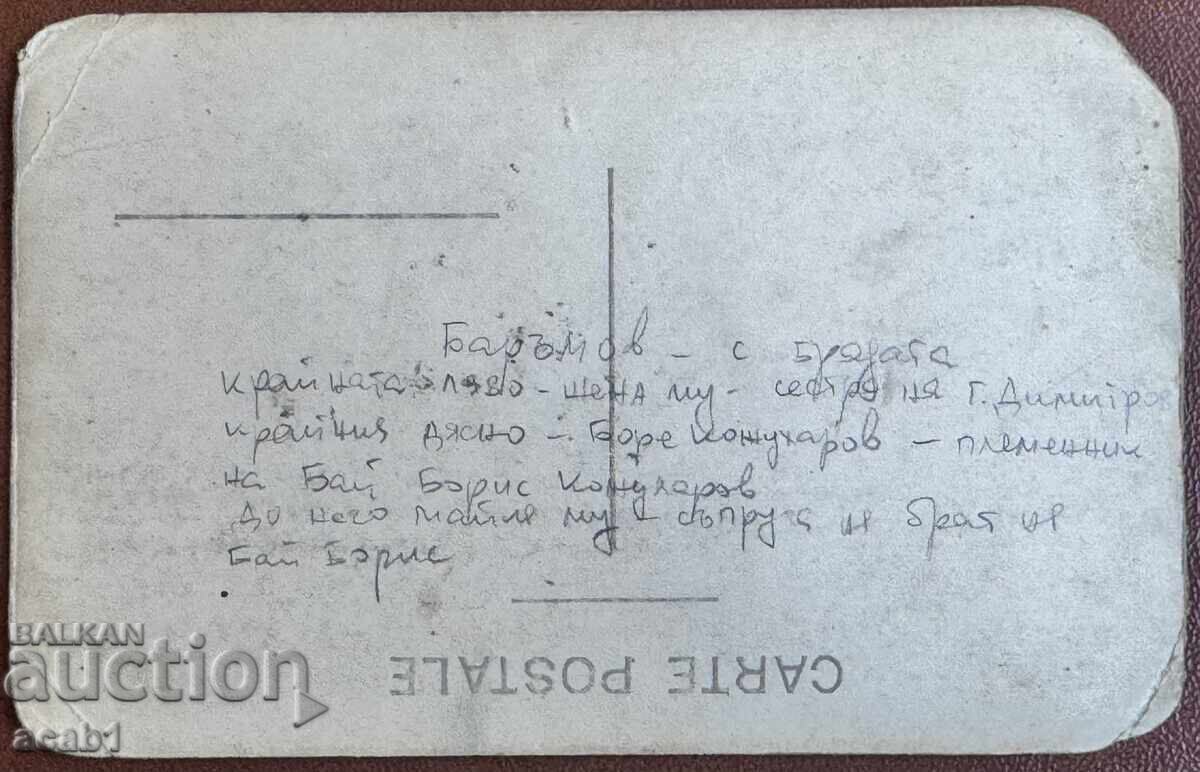 Баръмов - с брадата
крайната ляво - жена му - сестра на Г. Димитров
крайния дясно - Боре Кожухаров - племенник
на Бай Борис Кожухаров
До него майка му - съпруга на брат на
Бай Борис
CARTE POSTALE
BALKAN
auction
acab1